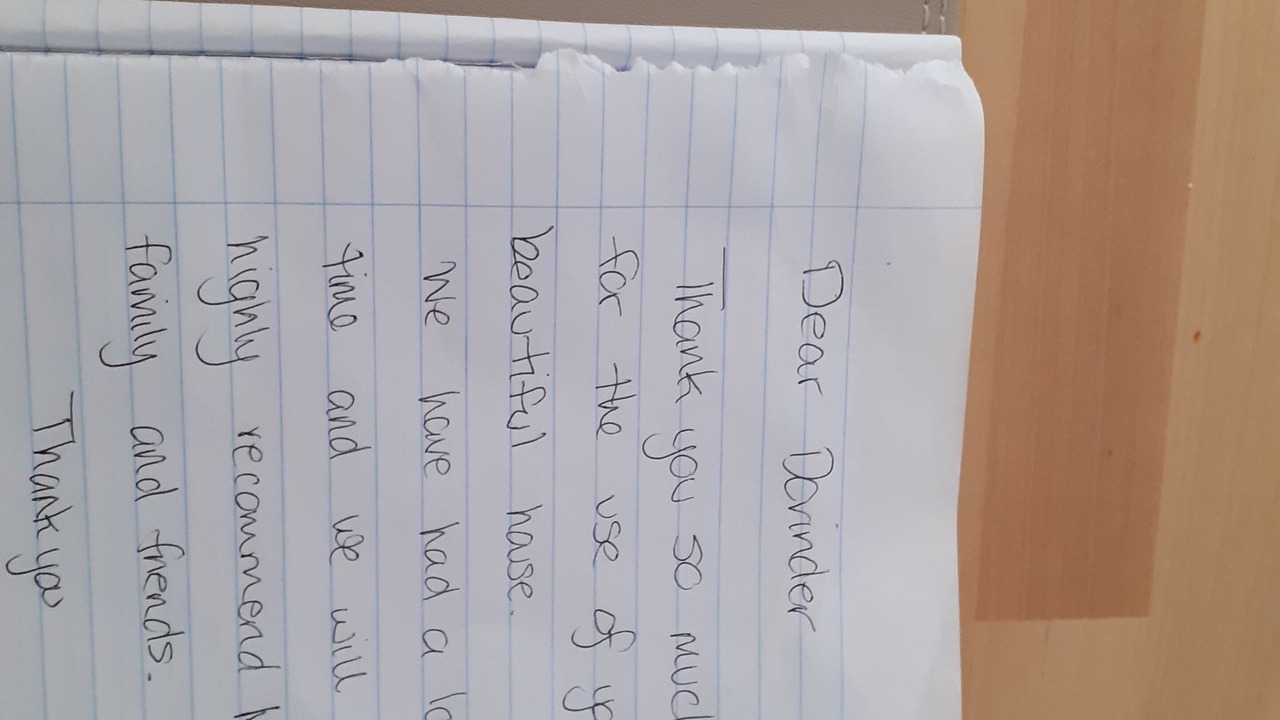 Dear Dorinder
Thank you so much
for the use of
beautiful house.
We have had a
time and we will
highly recommend
family and friends.
Thank you